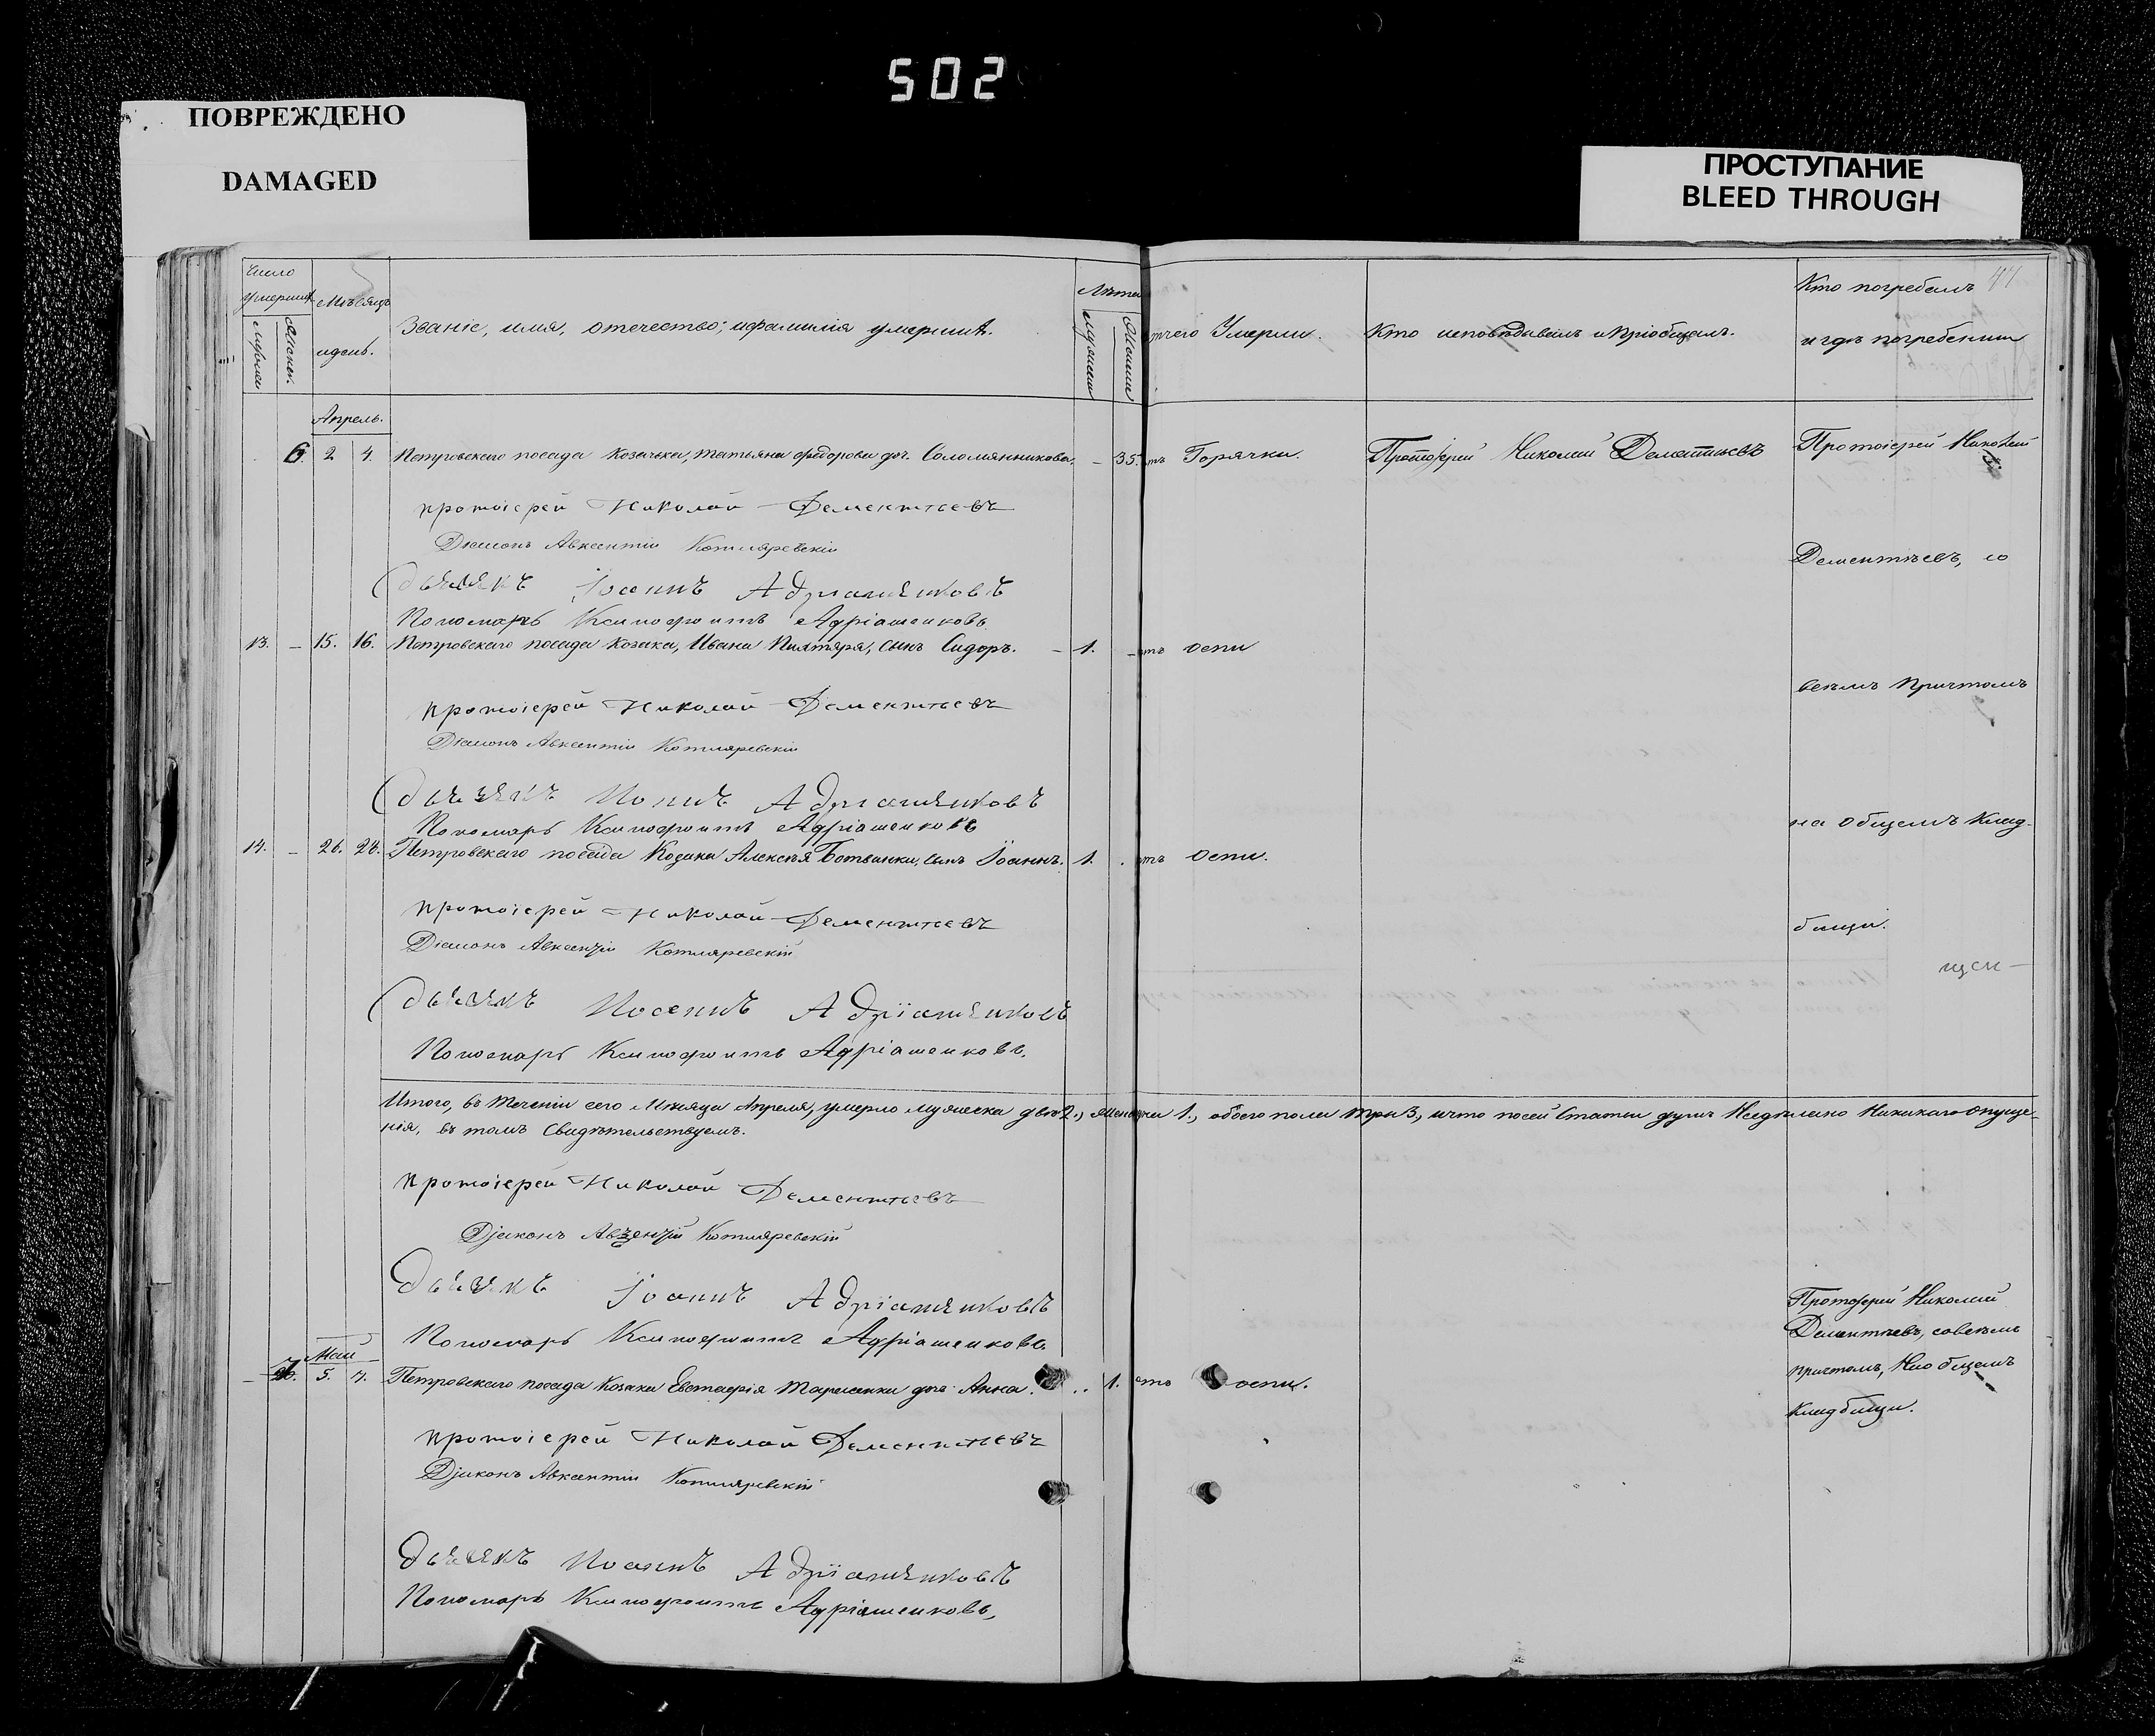 502
ПОВРЕЖДЕНО
DAMAGED
ПРОСТУПАНИЕ
BLEED THROUGH
Число умершихъ
Мѣсяцъ и день.
Званіе, имя, отечество, и фамилія умершихъ.
Лѣта
отчего Умерли.
Кто исповѣдывалъ и пріобщалъ.
Кто погребалъ
и гдѣ погребенны
Апрель.
6. 2 4. Петровскаго посада Козачька, Татьяна Федорова доч. Соломянникова. – 35. отъ Горячки. Протоіерей Николай Дементьевъ Протоіерей Николай
протоіерей Николай Дементьевъ
Діаконъ Авксентій Котляревскій
Дементьевъ, со
дьячекъ Іоаннъ Адріашенковъ
Пономарь Ксинофонтъ Адріашенковъ.
13. – 15. 16. Петровскаго посада Козака, Ивана сынъ Сидоръ. – 1. – отъ оспи
всѣмъ причтомъ
протоіерей Николай Дементьевъ
Діаконъ Авксентій Котляревскій
дьячекъ Иоаннъ Адріашенковъ
на общемъ клад-
Пономарь Ксинофонтъ Адріашенковъ
14. – 26. 28. Петровскаго посада Козака Алексѣя Ботвинки, сынъ Іоаннъ. 1. . отъ Оспи.
протоіерей Николай Дементьевъ
бищи.
Діаконъ Авксентій Котляревскій
дьячекъ Иоаннъ Адріашенковъ
Пономарь Ксинофонтъ Адріашенковъ.
Итого, въ теченіи сего Мѣсяца Апреля, умерло мужеска два 2., женска 1., обоего пола три 3, и что по сей Статьи другихъ Несдѣлано Никакаго опуще-
нія, въ томъ Свидѣтельствуемъ.
протоіерей Николай Дементьевъ
Діаконъ Авксентій Котляревскій
дьячекъ Іоаннъ Адріашенковъ
Пономарь Ксинофонтъ Адріашенковъ.
Май
Протоіерей Николай
Дементьевъ, совсѣмъ
– 7. 5. 7. Петровскаго посада Козака Евстафія Тарасенки доч: Анна. .. 1. отъ оспи.
причтомъ, На общемъ
кладбищи.
протоіерей Николай Дементьевъ
Діаконъ Авксентій Котляревскій
дьячекъ Иоаннъ Адріашенковъ
Пономарь Ксинофонтъ Адріашенковъ,